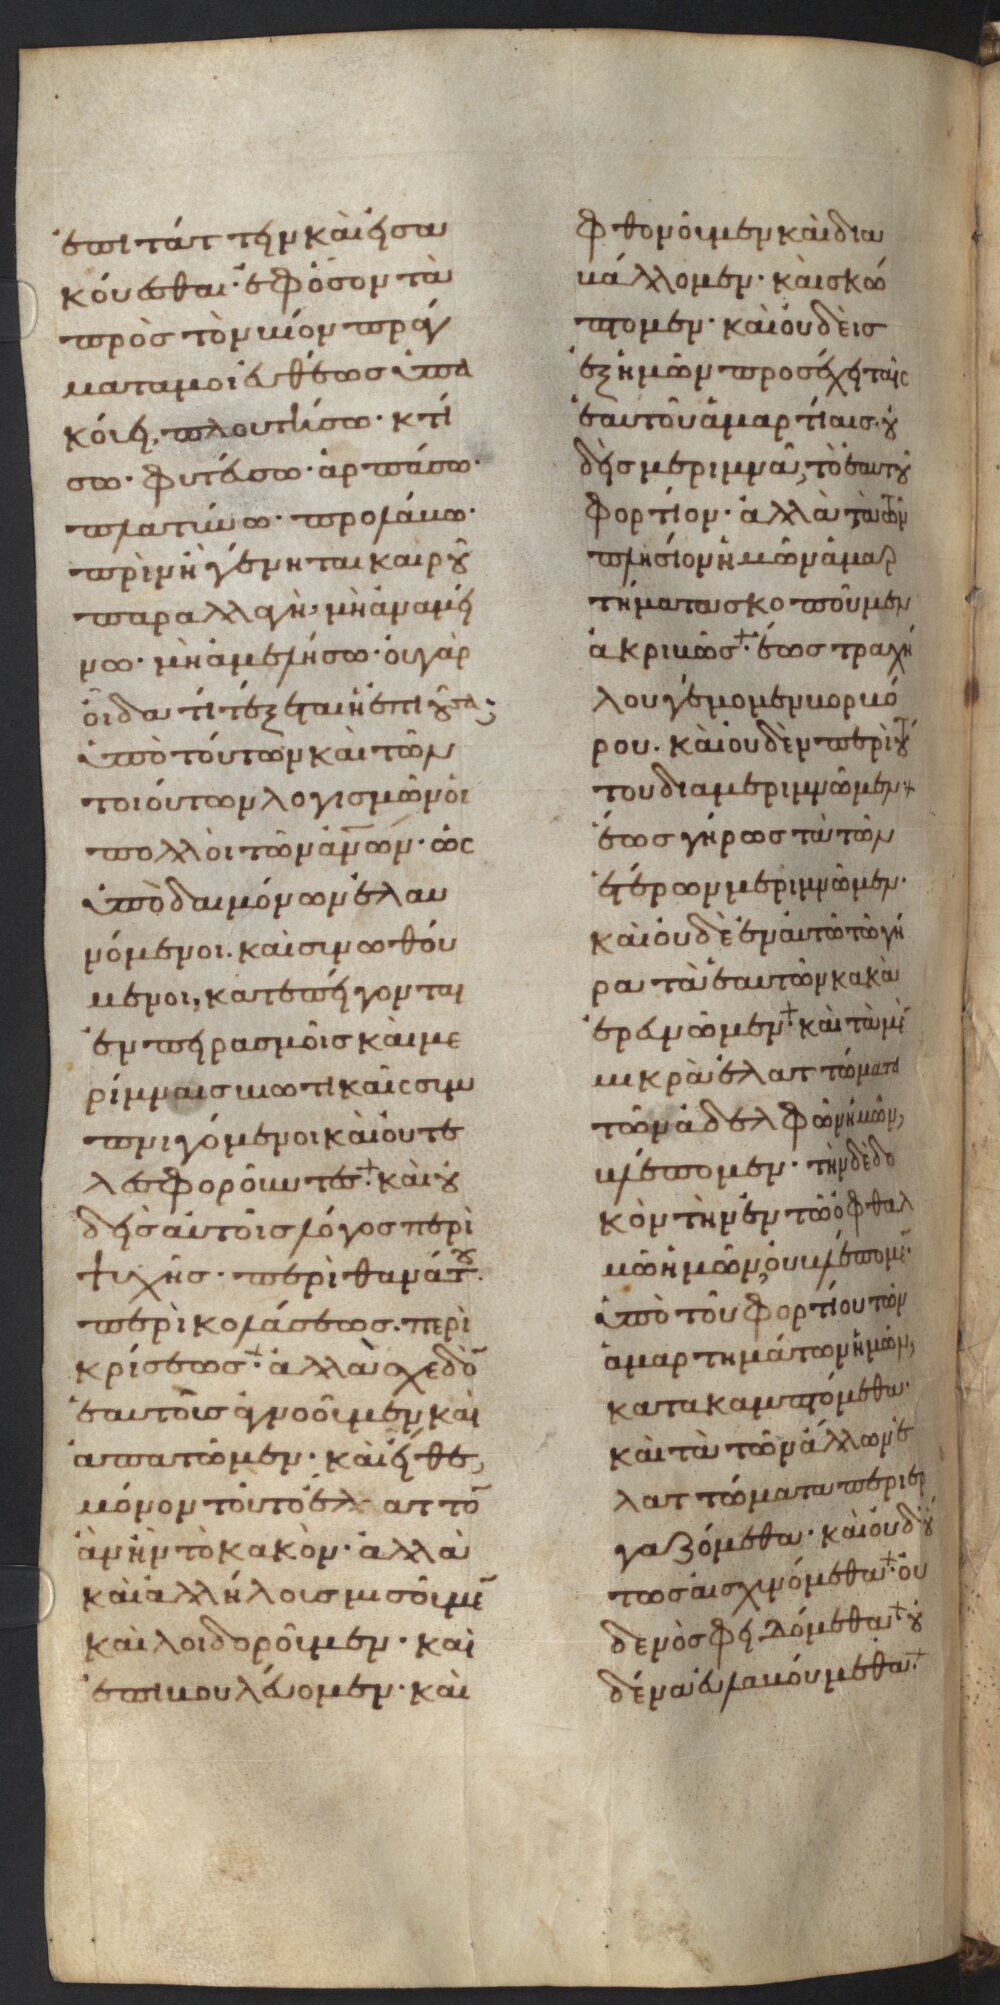 ἐπιτάττην καὶ εἰσα
κούεσθαι· ἐφ ὅσον τὰ
πρὸς τὸν βίον πράγ
ματα μοι εὐθέως ὑπα
κόυει, πλουτίσω· κτί
σω· φυτεύσω· ἁρπάσω·
πλατύνω· προλάβω·
πρινὴ γένηται καιροῦ
παραλλαγὴ· μὴ ἀναμεί
νω· μὴ ἀμελήσω· οὐ γὰρ
οἶδα τί τέξεται ἡ ἐπιοῦσα;
ὑπὸ τούτων καὶ τῶν
τοιούτων λογισμῶν οἱ
πολλοὶ τῶν ἀν̅ων· ὡς
ὑπὸ δαιμόνων ἐλαυ
νόμενοι· καὶ συνωθού
μενοι, κατεπείγονται
ἐν πειρασμοῖς καὶ με
ρίμναις βιωτικαῖς συμ
πνιγόμενοι καὶ οὐ τε
λεσφοροῦντες· καὶ οὐ
δεὶς αὐτοῖς λόγος περὶ
ψυχῆς· περὶ θανάτου·
περὶ κολάσεως· περὶ
κρίσεως· ἀλλὰ σχεδὸ̅
ἑαυτοῖς ἀγνοοῦμεν καὶ
ἀπατῶμεν· καὶ εἴθε,
μόνον τοῦτο ἐλαττο̅
ἂν ἦν τὸ κακὸν· ἀλλὰ
καὶ ἀλλήλοις μισοῦμε̅
καὶ λοιδοροῦμεν· καὶ
ἐπιβουλεύομεν· καὶ
φθονοῦμεν καὶ δια
βάλλομεν· καὶ σκώ
πτομεν· καὶ οὐδεὶς
ἐξ ἡμῶν προσέχει ταῖς
ἑαυτοῦ ἁμαρτίαις· οὐ
δεὶς μεριμνᾷ, τὸ ἑαυτοῦ
φορτίον· ἀλλὰ τὰ τῶν
πλησίον ἡμῶν ἁμαρ
τήματα σκοποῦμεν
ἀκριβῶς· ἕως τραχή
λου γέμομεν βορβό
ρου· καὶ οὐδὲν περὶ τού
του διαμεριμνῶμεν·
ἕως γήρως τὰ τῶν
ἑτέρων μεριμνῶμεν·
καὶ οὐδὲ ἐν αὐτῶ τῶ γή
ρα τὰ ἑαυτῶν κακὰ
ἐρευνῶμεν· καὶ τὰ μὲ̅
μικρὰ ἐλαττώματα
τῶν ἀδελφῶν ἡμῶν,
βλέπομεν· τὴν δὲ δο
κὸν τὴν ἐν τῶ ὀφθαλ
μῶ ἡμῶν, οὐ βλέπομε̅·
ὑπὸ τοῦ φορτίου τῶν
ἁμαρτημάτων ἡμῶν,
κατακαμπτόμεθα·
καὶ τὰ τῶν ἄλλων ἐ
λαττώματα περιερ
γαζόμεθα· καὶ οὐδ οὕ
τως αἰσχυνόμεθα· οὐ
δενὸς φειδόμεθα· οὐ
δένα εὐλαβούμεθα·